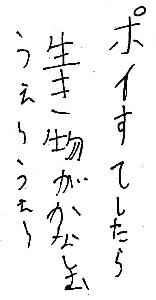 ポイすてしたら
生き物がかなしむ
うえ〜うえ〜